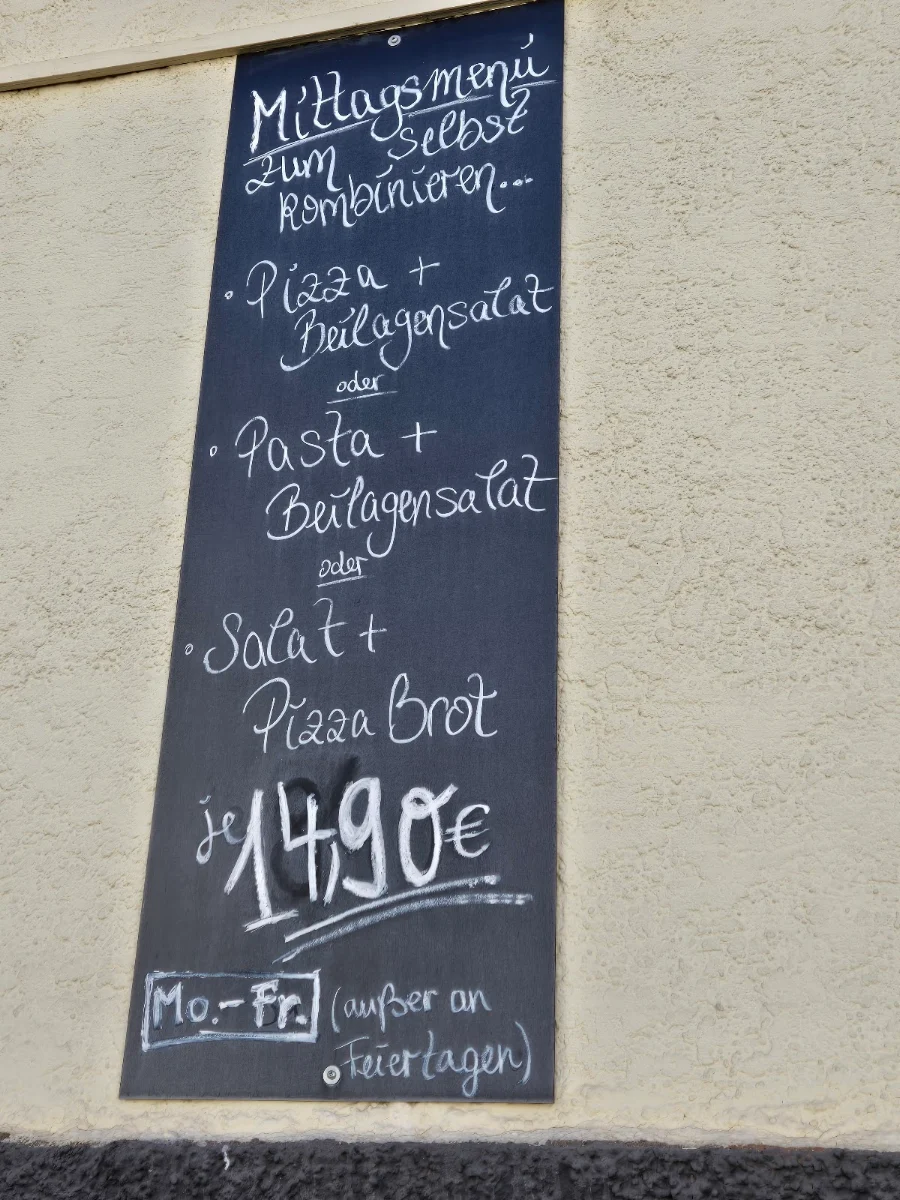 Mittagsmenü
zum selbst
kombinieren...
• Pizza +
Beilagensalat
oder
• Pasta +
Beilagensalat
oder
• Salat +
Pizza Brot
je 14,90€
Mo.-Fr. (außer an
Feiertagen)